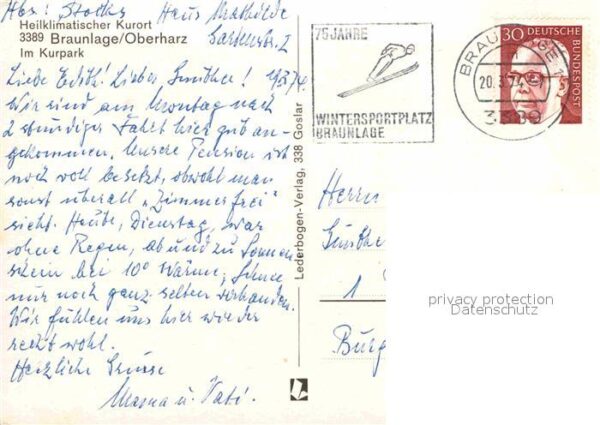 Abs: Stolks Haus Mathilde
Heilklimatischer Kurort
3389 Braunlage/Oberharz
Im Kurpark
Gartenstr. 2
Liebe Edith! Lieber Günther! 19.3.74.
Wir sind am Montag nach
2 stündiger Fahrt hier gut an-
gekommen. Unsere Pension ist
noch voll besetzt, obwohl man
sonst überall "Zimmer frei"
sieht. Heute, Dienstag, war
ohne Regen, ab und zu Sonnen
schein bei 10° Wärme, Schnee
nur noch ganz selten vorhanden.
Wir fühlen uns hier wieder
recht wohl.
Herzliche Grüsse
Mama u. Vati.
Lederbogen-Verlag, 338 Goslar
75 JAHRE
WINTERSPORTPLATZ
BRAUNLAGE
BRAUNLAGE 1
20.3.74
3389
30
DEUTSCHE
BUNDESPOST
Herrn
Günther
1
Burg
privacy protection
Datenschutz